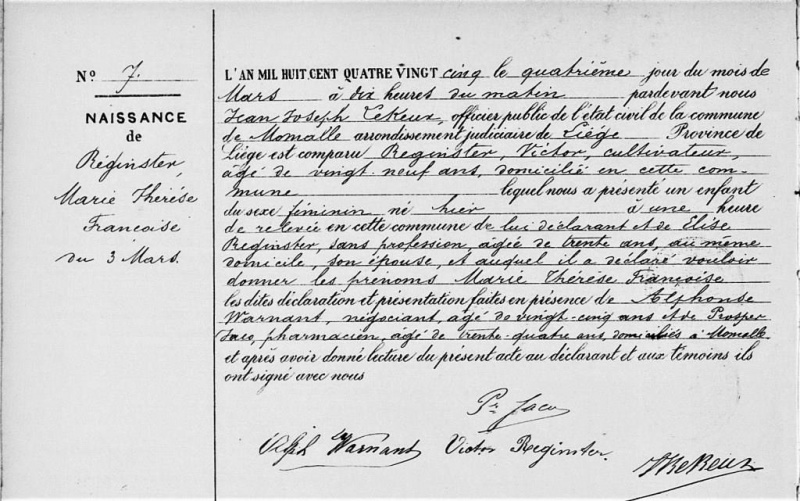 N° 7.
NAISSANCE
de
Réginster,
Marie Thérèse
Françoise
du 3 Mars.
L'AN MIL HUIT CENT QUATRE VINGT cinq le quatrième jour du mois de
Mars à dix heures du matin pardevant nous
Jean Joseph Lekeux, officier public de l'état civil de la commune
de Momalle arrondissement judiciaire de Liége Province de
Liége est comparu Reginster, Victor, cultivateur,
âgé de vingt-neuf ans, domicilié en cette com-
mune lequel nous a présenté un enfant
du sexe féminin né hier à une heure
de relevée en cette commune de lui déclarant et de Elise
Reginster, sans profession, âgée de trente ans, au même
domicile, son épouse, et auquel il a déclaré vouloir
donner les prénoms Marie Thérèse Françoise
les dites déclaration et présentation faites en présence de Alphonse
Warnant, négociant, âgé de vingt-cinq ans et de Prosper
Jaco, pharmacien, âgé de trente-quatre ans, domiciliés à Momalle
et après avoir donné lecture du présent acte au déclarant et aux témoins ils
ont signé avec nous
Pr Jaco
Alph Warnant Victor Reginster.
JLeKeux